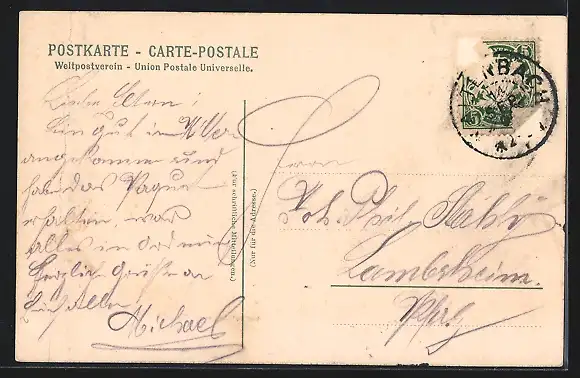 POSTKARTE - CARTE-POSTALE
Weltpostverein - Union Postale Universelle.
Liebe Eltern!
Bin gut in
angekommen und
hab das Paquet
erhalten, war
alles in Ordnung
Herzliche Grüße an
Euch alle,
Michael
(Für schriftliche Mitteilungen.)
(Nur für die Adresse.)
Herrn
Joh. Phil. Stähly
Lambsheim
Pfalz
5
5
RBACH